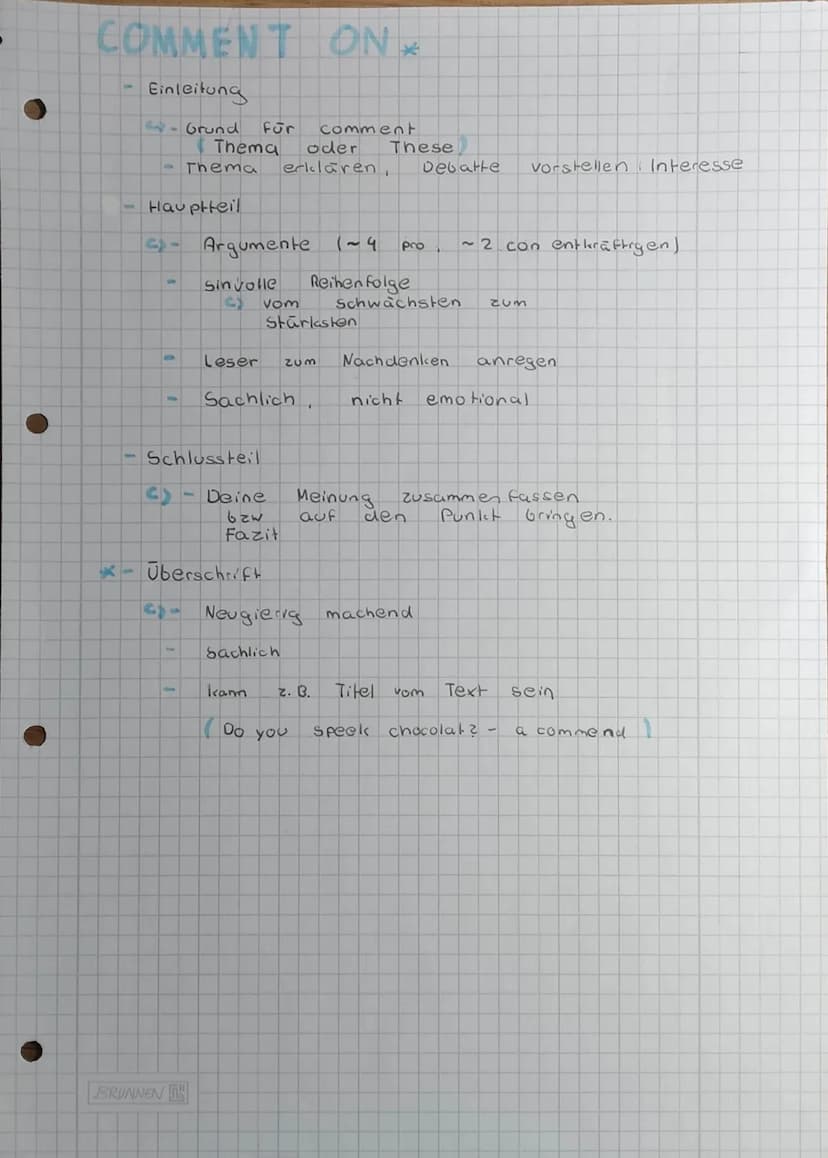 COMMENT ON *
- Einleitung
↳ - Grund für comment
(Thema oder These)
- Thema erklären, Debatte vorstellen, Interesse
- Hauptteil
↳ - Argumente (~4 pro, ~2 con entkräftigen)
- sinvolle Reihenfolge
↳ vom schwächsten zum
stärksten
- Leser zum Nachdenken anregen
- Sachlich, nicht emotional
- Schlussteil
↳ - Deine Meinung zusammenfassen
bzw auf den Punkt bringen.
Fazit
* - Überschrift
↳ - Neugierig machend
- sachlich
- kann z.B. Titel vom Text sein
(Do you speek chocolat? - a commend)
BRUNNEN